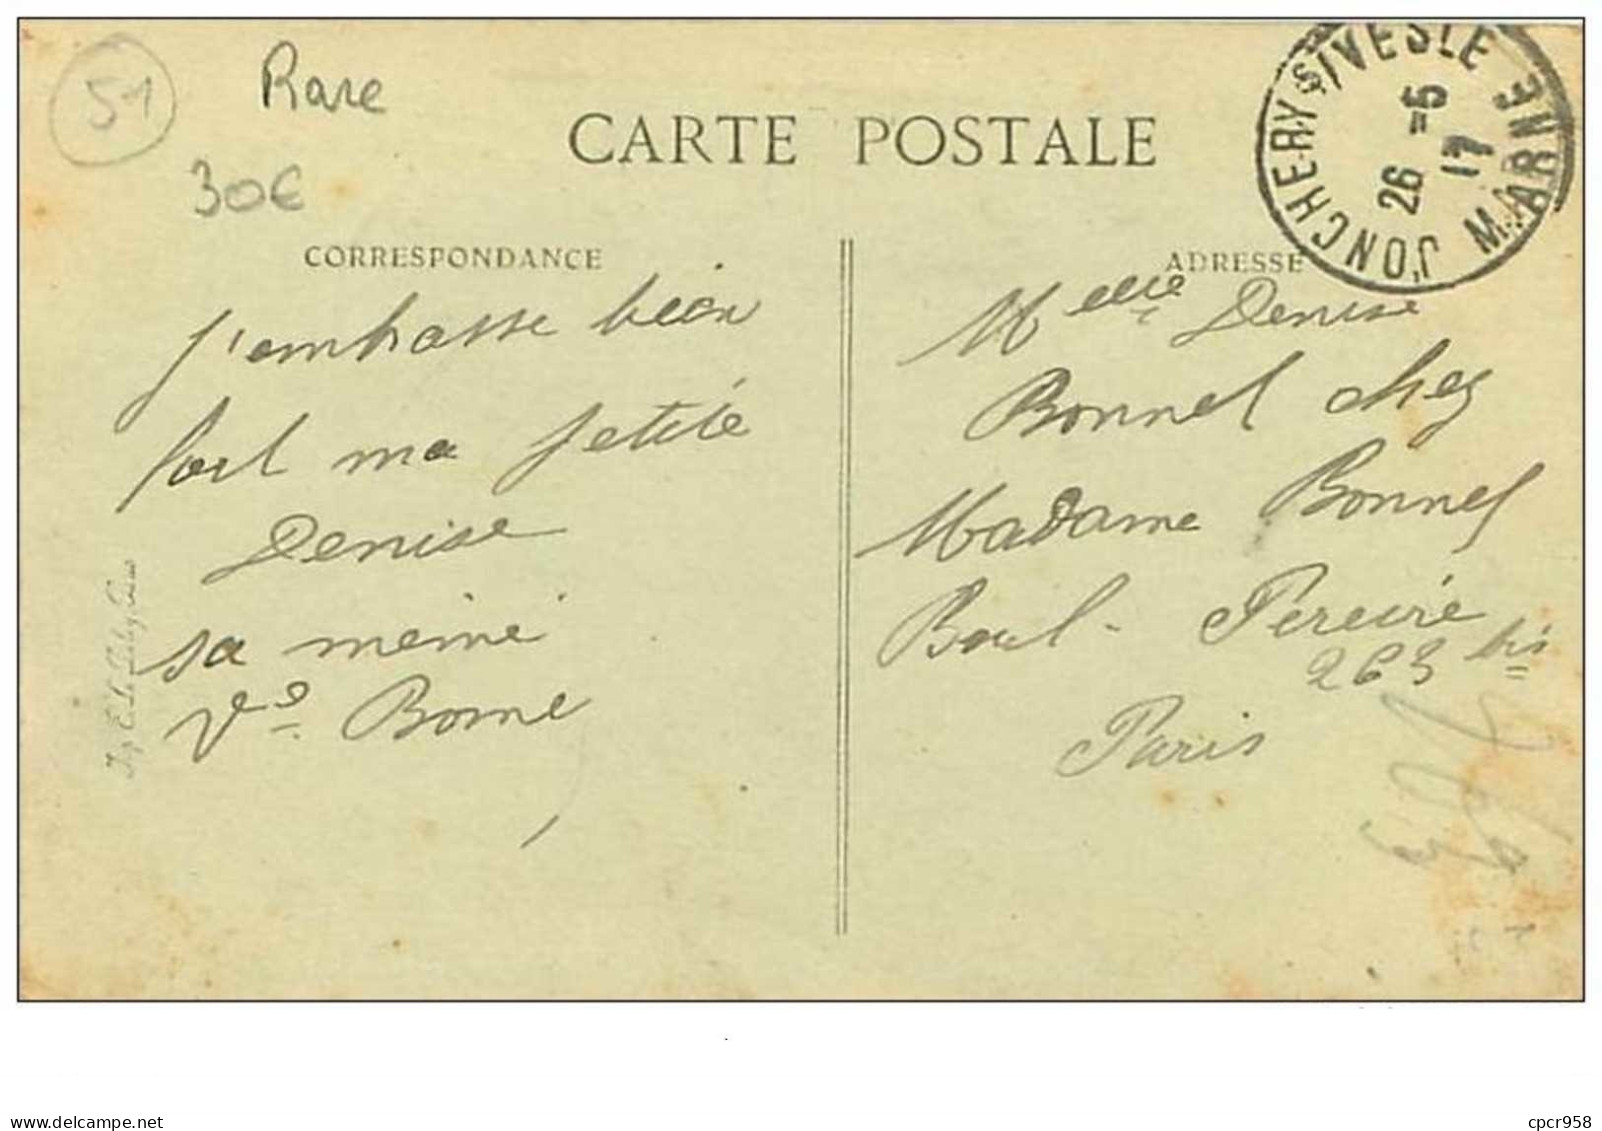 51
Rare
30€
CARTE POSTALE
JONCHERY S/VESLE
26 -5
17
MARNE
CORRESPONDANCE
ADRESSE
j'embrasse bien
fort ma petite
Denise
sa mémé
Vᵉ Borne
Melle Denise
Bonnel chez
Madame Bonnel
Boul. Pereire
263 bis
Paris
delcampe.net
cpcr958